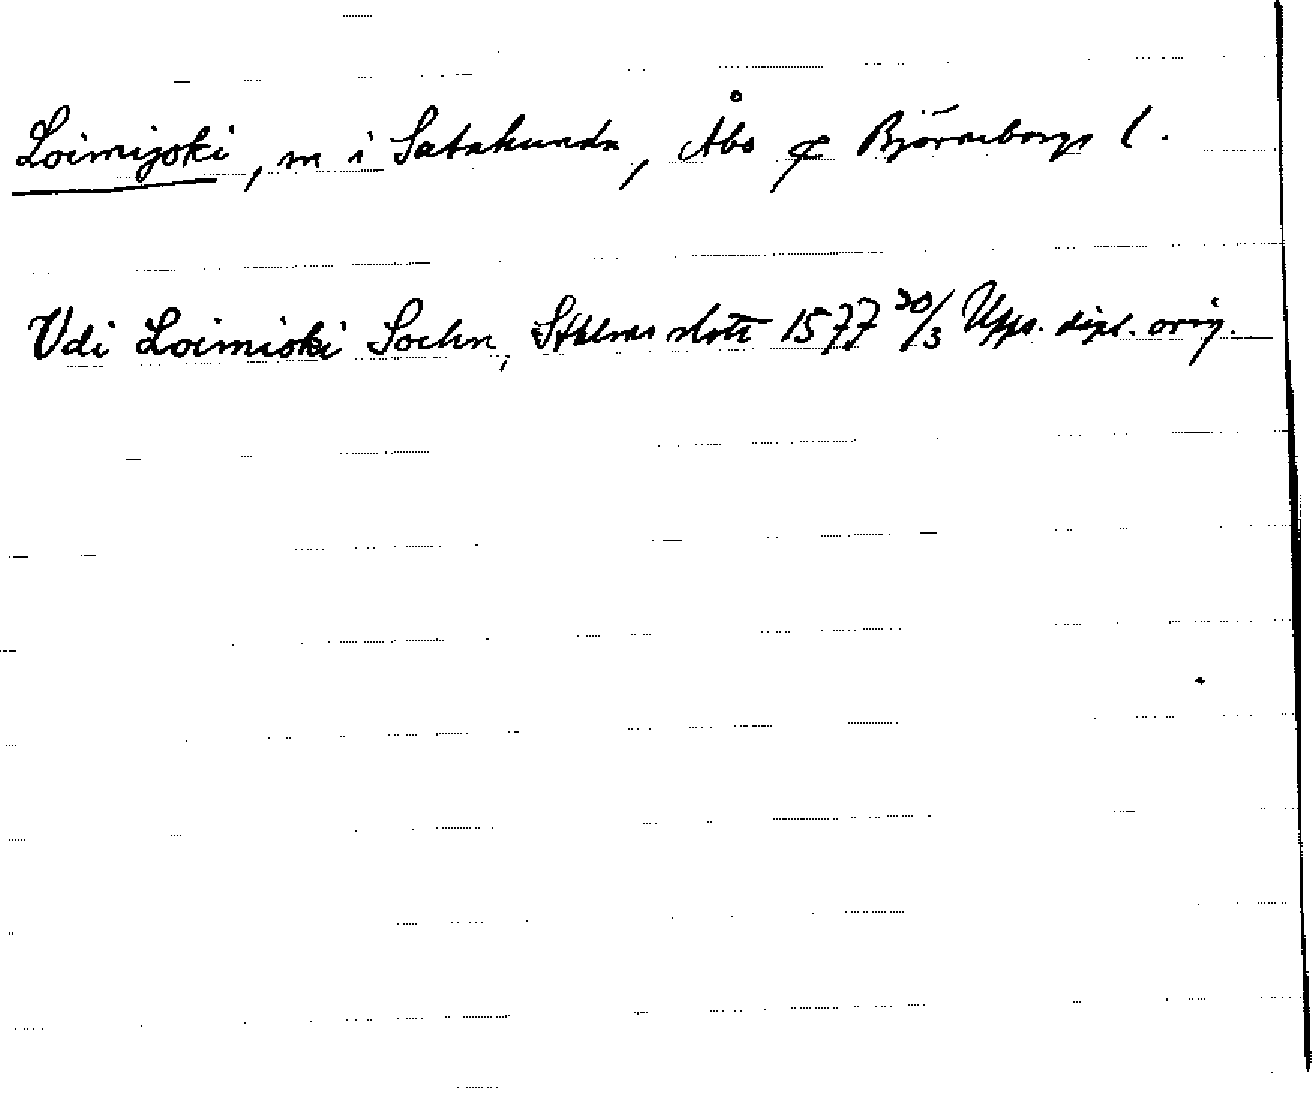 Loimijoki, m i Satakunda, Åbo & Björneborgs l.
Vdi Loimioki Sochn, Sthlms slott 1577 30/3 Upps. dipl. orig.